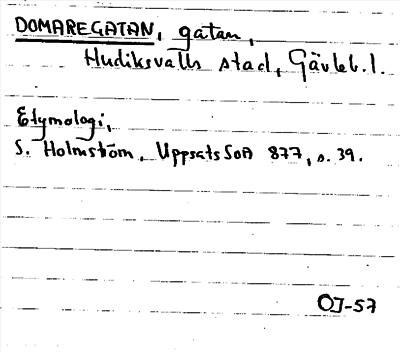 DOMAREGATAN, gatan,
Hudiksvalls stad, Gävleb.l.
Etymologi,
S. Holmström, Uppsats SOA 877, s. 39.
OJ-57